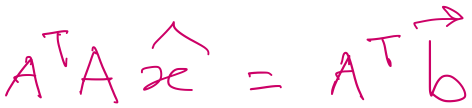 AᵀA x̂ = Aᵀ b⃗